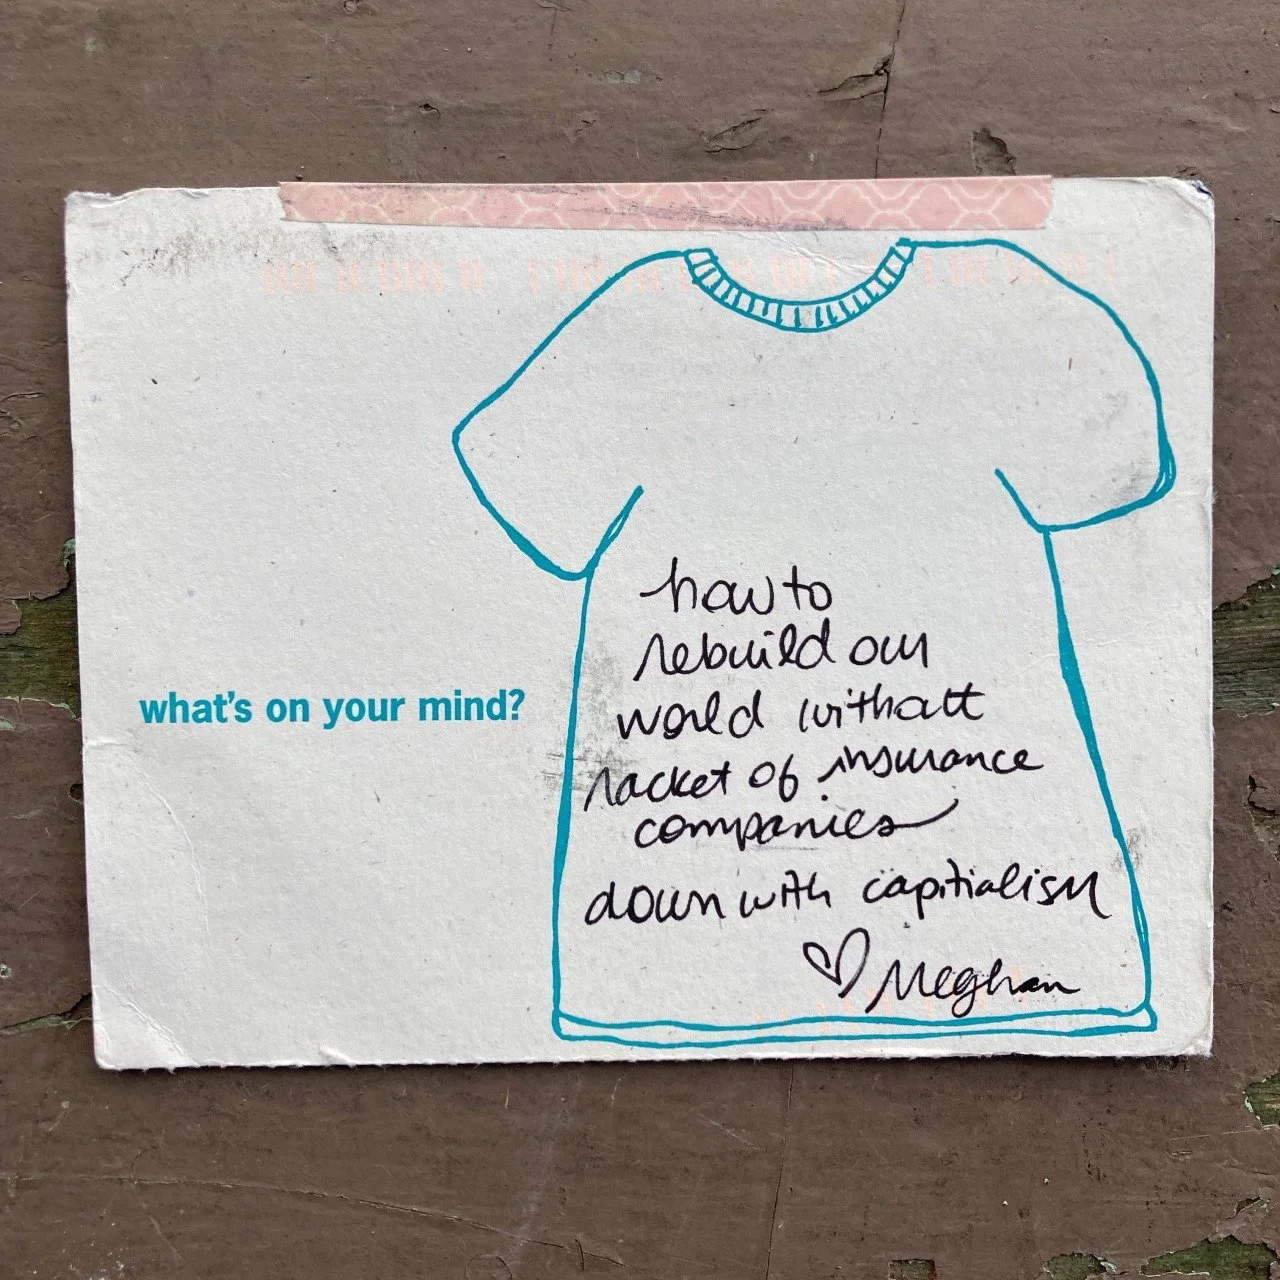 what's on your mind?
how to
rebuild our
world without
racket of insurance
companies
down with capitialism
♡ Meghan